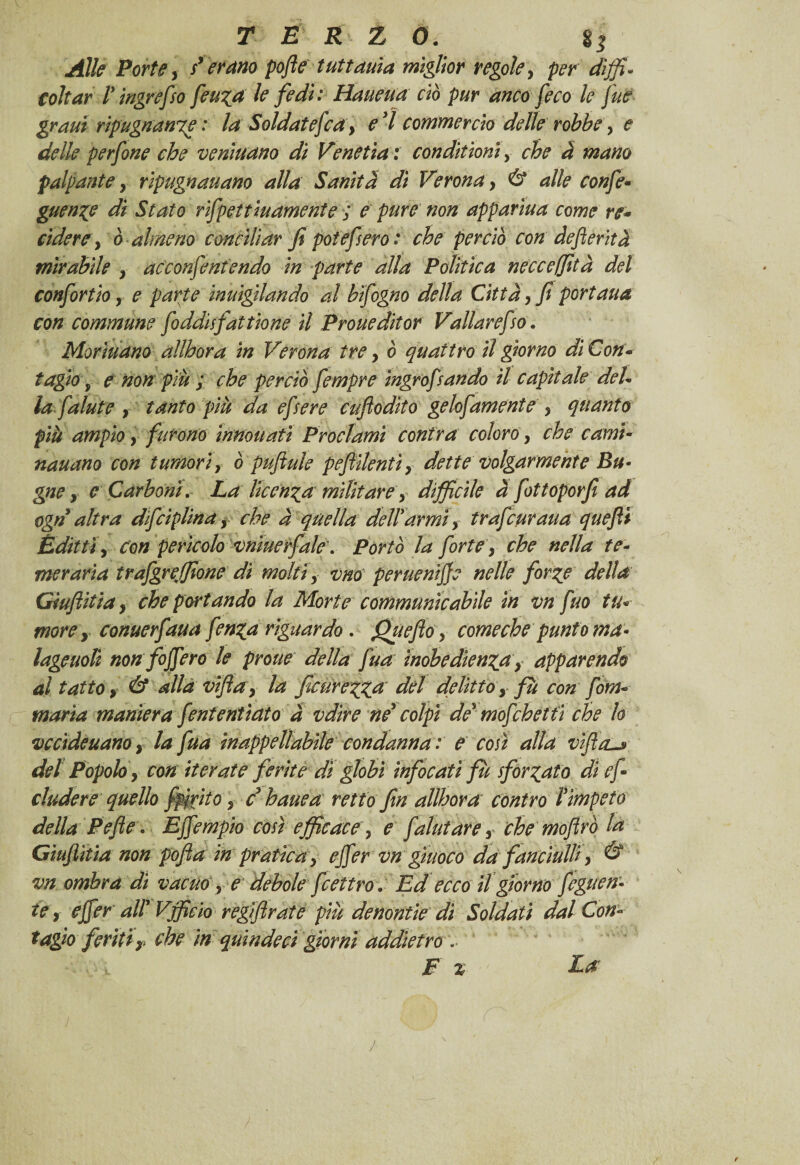 TERZO. 83
Alle Porte, s'erano poſte tuttauia miglior regole, per diffi-
coltar l'ingreſso ſenza le fedi: Haueua ciò pur anco ſeco le ſue
graui ripugnanze: la Soldateſca, e'l commercio delle robbe, e
delle perſone che veniuano di Venetia: conditioni, che à mano
palpante, ripugnauano alla Sanità di Verona, & alle conſe-
guenze di Stato riſpettiuamente; e pure non appariua come re-
cidere, ò almeno conciliar ſi poteſsero: che perciò con deſterità
mirabile, acconſentendo in parte alla Politica necceſſità del
conſortio, e parte inuigilando al biſogno della Città, ſi portaua
con commune ſoddisfattione il Proueditor Vallareſso.
Moriuano allhora in Verona tre, ò quattro il giorno di Con-
tagio, e non più; che perciò ſempre ingroſsando il capitale del-
la ſalute, tanto più da eſsere cuſtodito geloſamente, quanto
più ampio, furono innouati Proclami contra coloro, che cami-
nauano con tumori, ò puſtule peſtilenti, dette volgarmente Bu-
gne, e Carboni. La licenza militare, difficile à ſottoporſi ad
ogn'altra diſciplina, che à quella dell'armi, traſcuraua queſti
Editti, con pericolo vniuerſale. Portò la ſorte, che nella te-
meraria traſgreſſione di molti, vno perueniſſe nelle forze della
Giuſtitia, che portando la Morte communicabile in vn ſuo tu-
more, conuerſaua ſenza riguardo. Queſto, comeche punto ma-
lageuoli non foſſero le proue della ſua inobedienza, apparendo
al tatto, & alla viſta, la ſicurezza del delitto, fù con ſom-
maria maniera ſententiato à vdire ne' colpi de' moſchetti che lo
vccideuano, la ſua inappellabile condanna: e così alla viſta
del Popolo, con iterate ferite di globi infocati fù sforzato di eſ-
cludere quello ſpirito, c'hauea retto fin allhora contro l'impeto
della Peſte. Eſſempio così efficace, e ſalutare, che moſtrò la
Giuſtitia non poſta in pratica, eſſer vn giuoco da fanciulli, &
vn ombra di vacuo, e debole ſcettro. Ed ecco il giorno ſeguen-
te, eſſer all' Vfficio regiſtrate più denontie di Soldati dal Con-
tagio feriti, che in quindeci giorni addietro.
F 2 La